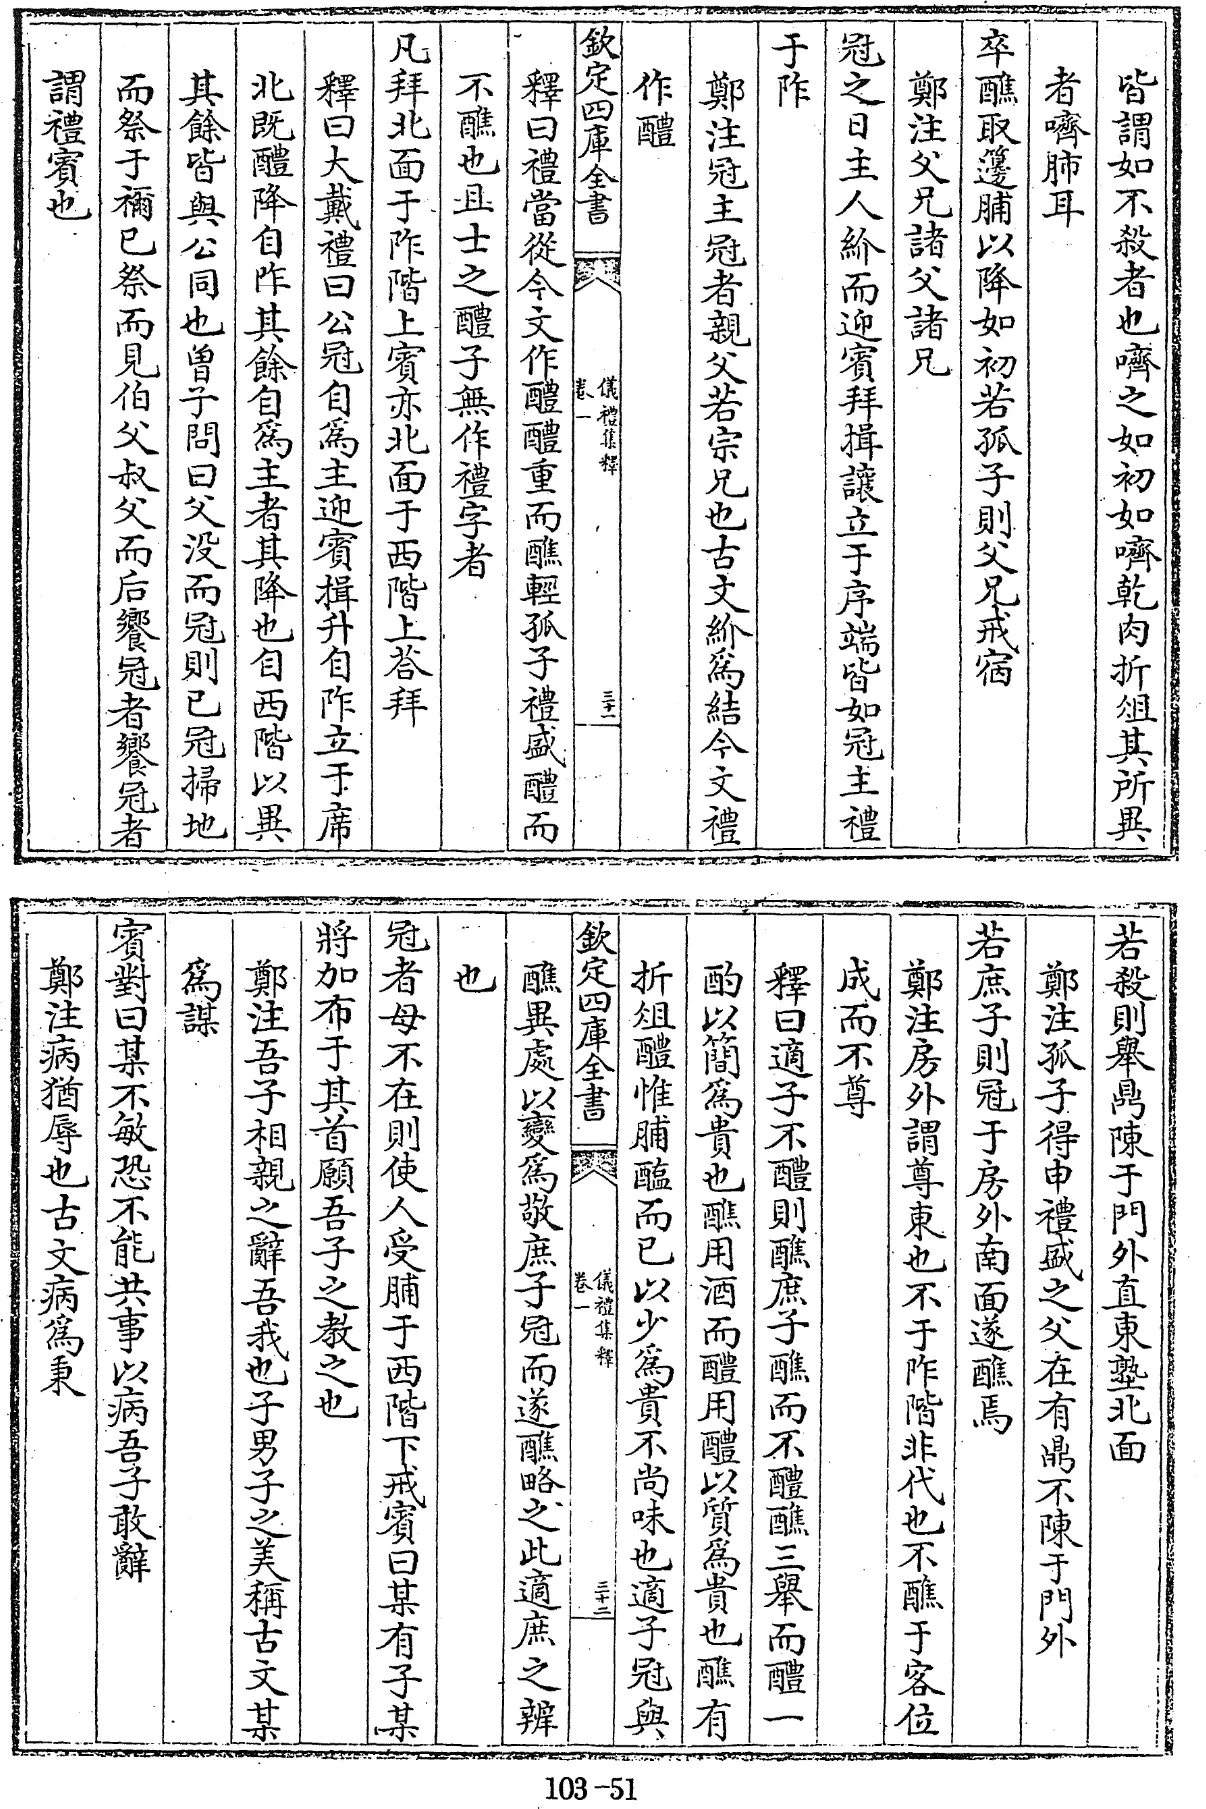 皆謂如不殺者也嚌之如初如嚌乾肉折俎其所異
者嚌肺耳
卒醮取籩脯以降如初若孤子則父兄戒宿
鄭注父兄諸父諸兄
冠之日主人紒而迎賓拜揖讓立于序端皆如冠主禮
于阼
鄭注冠主冠者親父若宗兄也古文紒為結今文禮
作醴
欽定四庫全書
儀禮集釋
卷一
三十一
釋曰禮當從今文作醴醴重而醮輕孤子禮盛醴而
不醮也且士之醴子無作禮字者
凡拜北面于阼階上賓亦北面于西階上荅拜
釋曰大戴禮曰公冠自為主迎賓揖升自阼立于席
北既醴降自阼其餘自為主者其降也自西階以異
其餘皆與公同也曾子問曰父没而冠則已冠掃地
而祭于禰已祭而見伯父叔父而后饗冠者饗冠者
謂禮賓也
若殺則舉鼎陳于門外直東塾北面
鄭注孤子得申禮盛之父在有鼎不陳于門外
若庶子則冠于房外南面遂醮焉
鄭注房外謂尊東也不于阼階非代也不醮于客位
成而不尊
釋曰適子不醴則醮庶子醮而不醴醮三舉而醴一
酌以簡為貴也醮用酒而醴用醴以質為貴也醮有
折俎醴惟脯醢而已以少為貴不尚味也適子冠與
欽定四庫全書
儀禮集釋
卷一
三十二
醮異處以變為敬庶子冠而遂醮略之此適庶之辨
也
冠者母不在則使人受脯于西階下戒賓曰某有子某
將加布于其首願吾子之教之也
鄭注吾子相親之辭吾我也子男子之美稱古文某
為謀
賓對曰某不敏恐不能共事以病吾子敢辭
鄭注病猶辱也古文病為秉
103-51